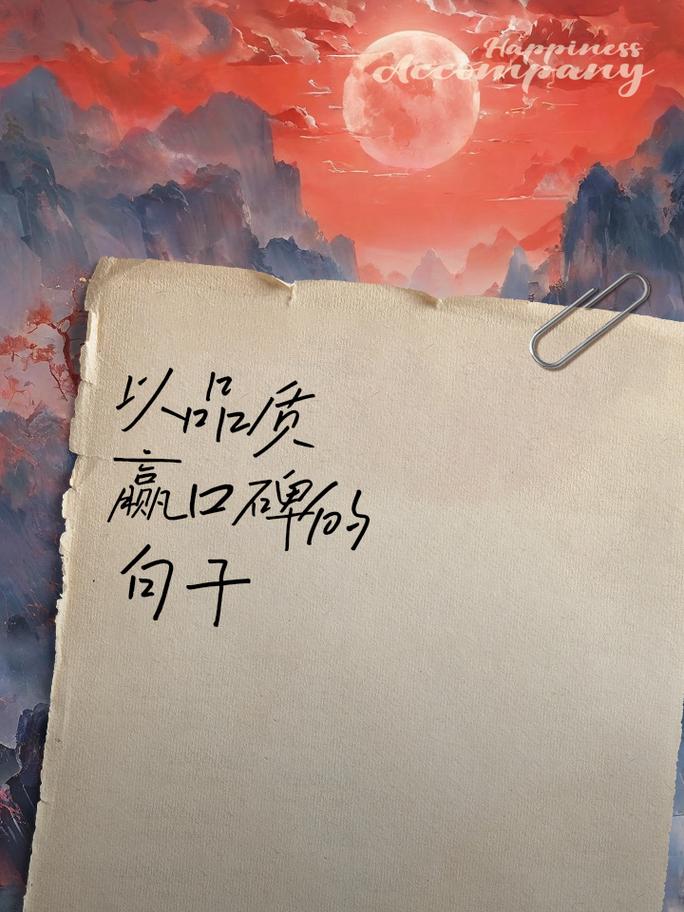 Happiness
Accompany
以品质
赢口碑的
句子